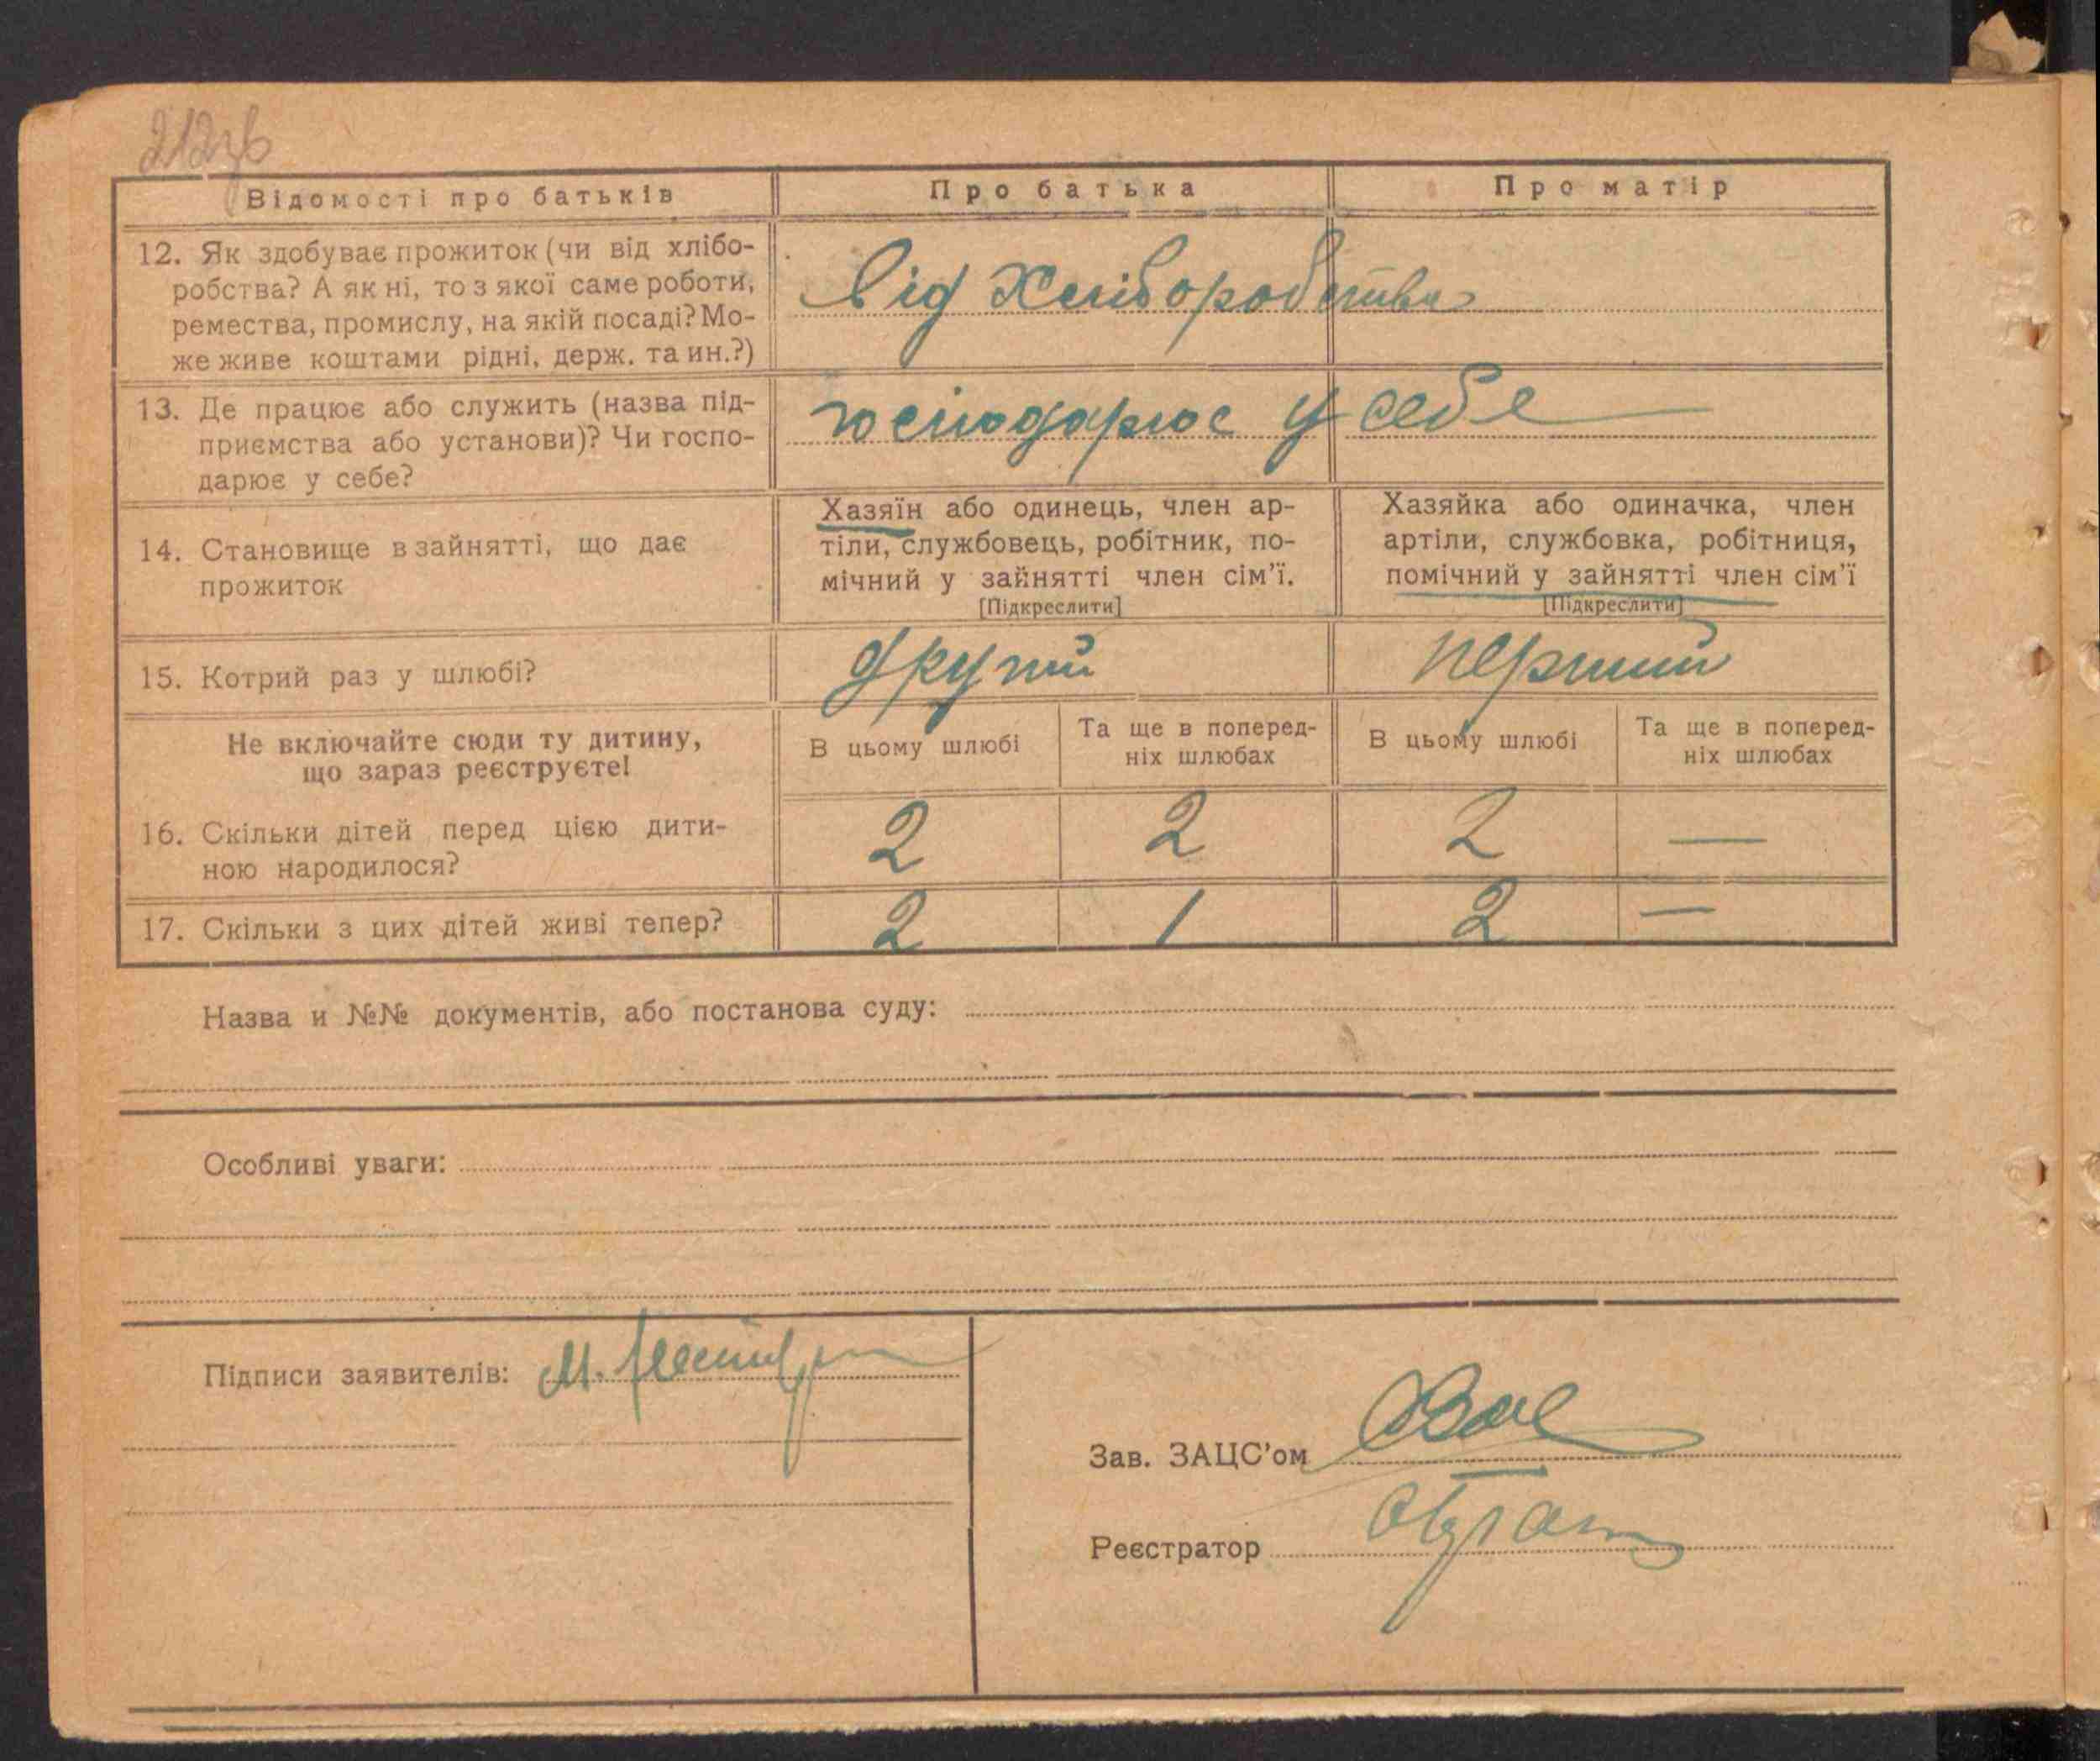 212зв
Відомості про батьків
Про батька
Про матір
12. Як здобуває прожиток (чи від хлібо-
робства? А як ні, то з якої саме роботи,
ремества, промислу, на якій посаді? Мо-
же живе коштами рідні, держ. та ин.?)
від Хліборобства
13. Де працює або служить (назва під-
приємства або установи)? Чи госпо-
дарює у себе?
господарює у себе
14. Становище в зайнятті, що дає
прожиток
Хазяїн або одинець, член ар-
тіли, службовець, робітник, по-
мічний у зайнятті член сім'ї.
[Підкреслити]
Хазяйка або одиначка, член
артіли, службовка, робітниця,
помічний у зайнятті член сім'ї
[Підкреслити]
15. Котрий раз у шлюбі?
другий
перший
Не включайте сюди ту дитину,
що зараз реєструєте!
В цьому шлюбі
Та ще в поперед-
ніх шлюбах
В цьому шлюбі
Та ще в поперед-
ніх шлюбах
16. Скільки дітей перед цією дити-
ною народилося?
2
2
2
—
17. Скільки з цих дітей живі тепер?
2
1
2
—
Назва и №№ документів, або постанова суду:
Особливі уваги:
Підписи заявителів: М.
Зав. ЗАЦС'ом
Реєстратор